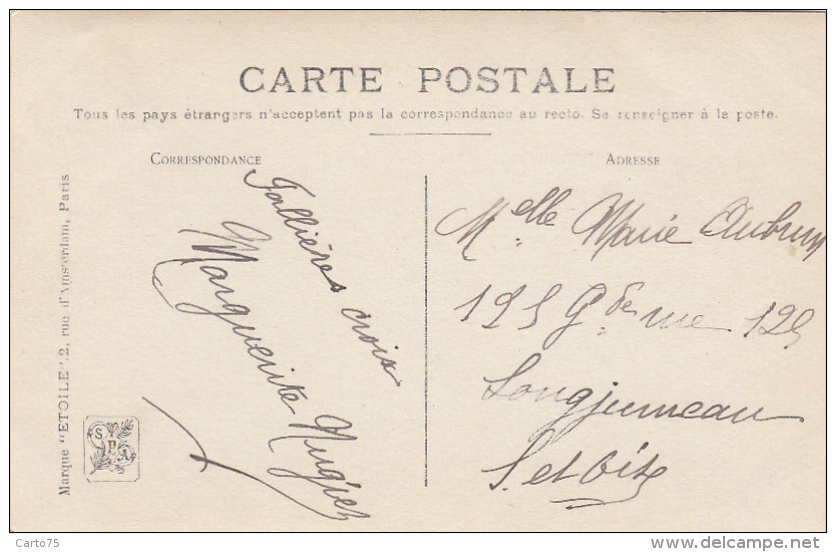 CARTE POSTALE
Tous les pays étrangers n'acceptent pas la correspondance au recto. Se renseigner à la poste.
CORRESPONDANCE
ADRESSE
Fallières croix
Marguerite Nugier
Melle Marie Aubrun
125 Gde rue 125
Longjumeau
S. et Oise
Marque "ETOILE" 2, rue d'Amsterdam, Paris
S P A
Carto75
delcampe.net